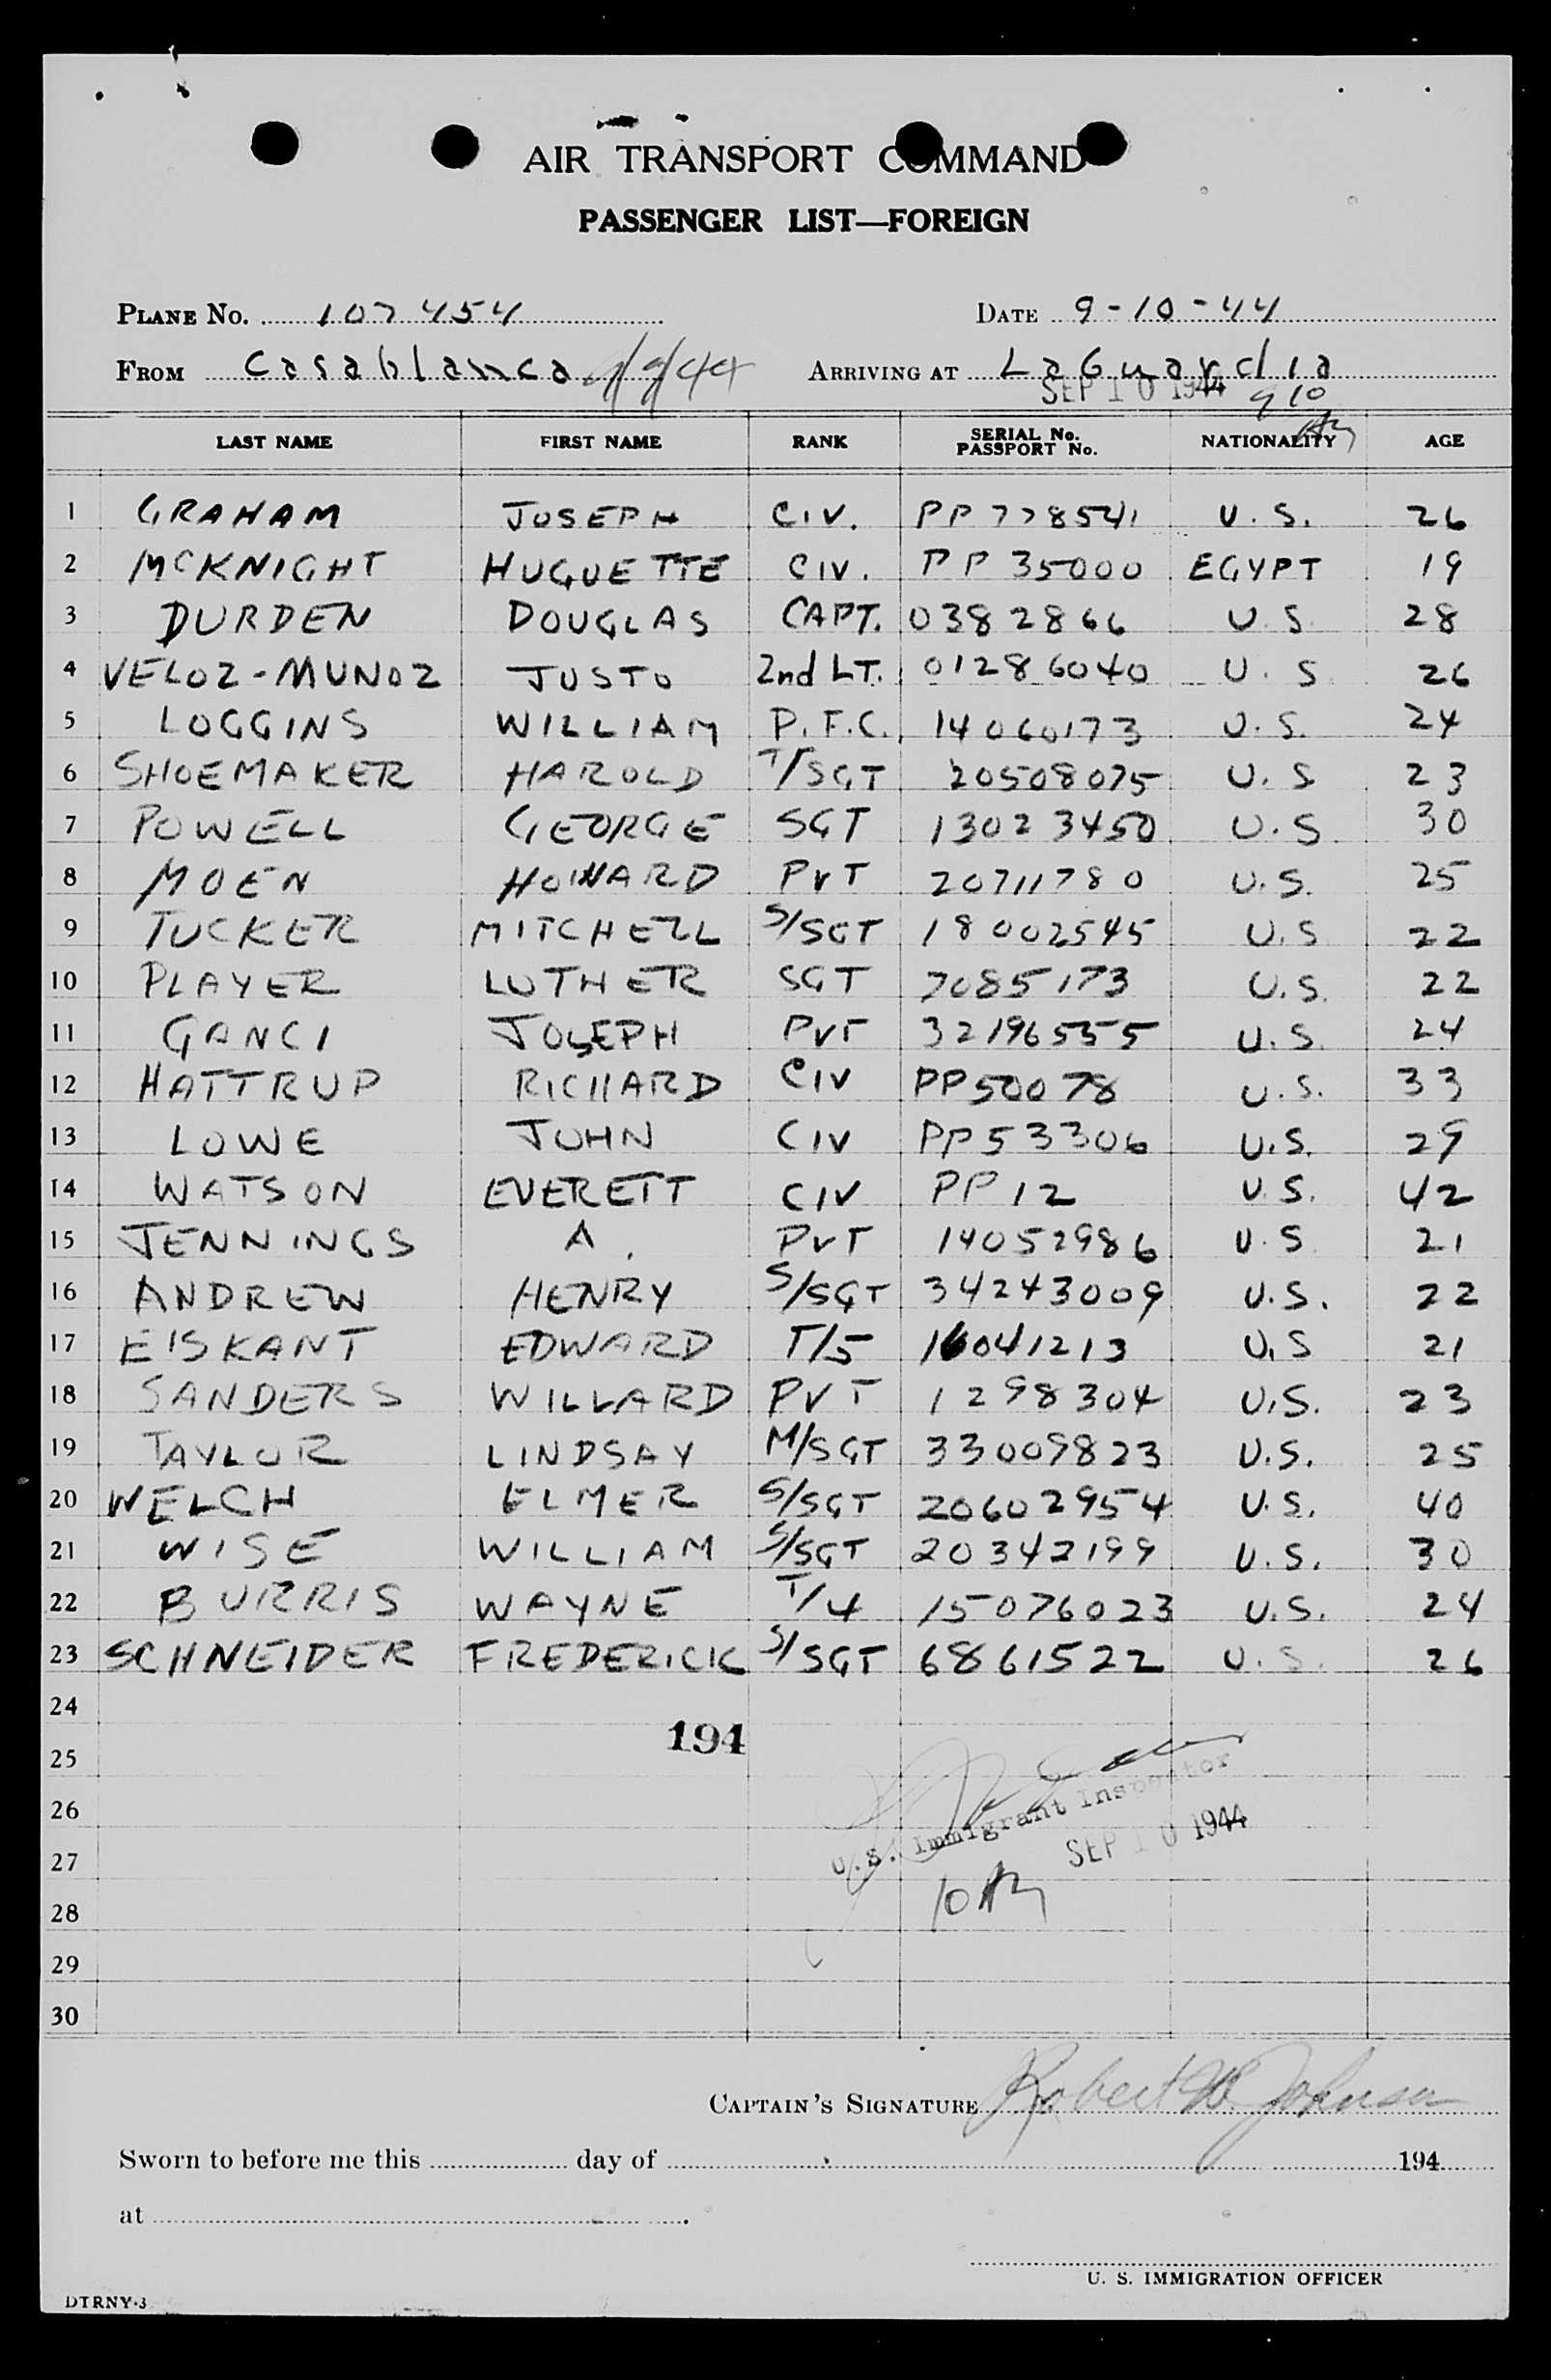 AIR TRANSPORT COMMAND
PASSENGER LIST—FOREIGN
PLANE No. 107454 DATE 9-10-44
FROM Casablanca 9/9/44 ARRIVING AT LaGuardia
SEP 10 1944 910
LAST NAME FIRST NAME RANK SERIAL No. PASSPORT No. NATIONALITY AGE
1 GRAHAM JOSEPH CIV. PP 778541 U.S. 26
2 MCKNIGHT HUGUETTE CIV. PP 35000 EGYPT 19
3 DURDEN DOUGLAS CAPT. 0382866 U.S 28
4 VELOZ-MUNOZ JUSTO 2nd LT. 01286040 U.S 26
5 LOGGINS WILLIAM P.F.C. 14060173 U.S. 24
6 SHOEMAKER HAROLD T/SGT 20508075 U.S 23
7 POWELL GEORGE SGT 13023450 U.S 30
8 MOEN HOWARD PVT 20711780 U.S. 25
9 TUCKER MITCHELL S/SGT 18002545 U.S 22
10 PLAYER LUTHER SGT 7085173 U.S. 22
11 GANCI JOSEPH PVT 32196555 U.S. 24
12 HATTRUP RICHARD CIV PP50078 U.S. 33
13 LOWE JOHN CIV PP53306 U.S. 29
14 WATSON EVERETT CIV PP12 U.S. 42
15 JENNINGS A. PVT 14052986 U.S 21
16 ANDREW HENRY S/SGT 34243009 U.S. 22
17 EISKANT EDWARD T/5 16041213 U.S 21
18 SANDERS WILLARD PVT 1298304 U.S. 23
19 TAYLOR LINDSAY M/SGT 33009823 U.S. 25
20 WELCH ELMER S/SGT 20602954 U.S. 40
21 WISE WILLIAM S/SGT 20342199 U.S. 30
22 BURRIS WAYNE T/4 15076023 U.S. 24
23 SCHNEIDER FREDERICK S/SGT 6861522 U.S. 26
24
194
25
26
U.S. Immigrant Inspector
27 SEP 10 1944
28 10
29
30
CAPTAIN'S SIGNATURE Robert W. Johnson
Sworn to before me this day of 194
at
U. S. IMMIGRATION OFFICER
DTRNY-3